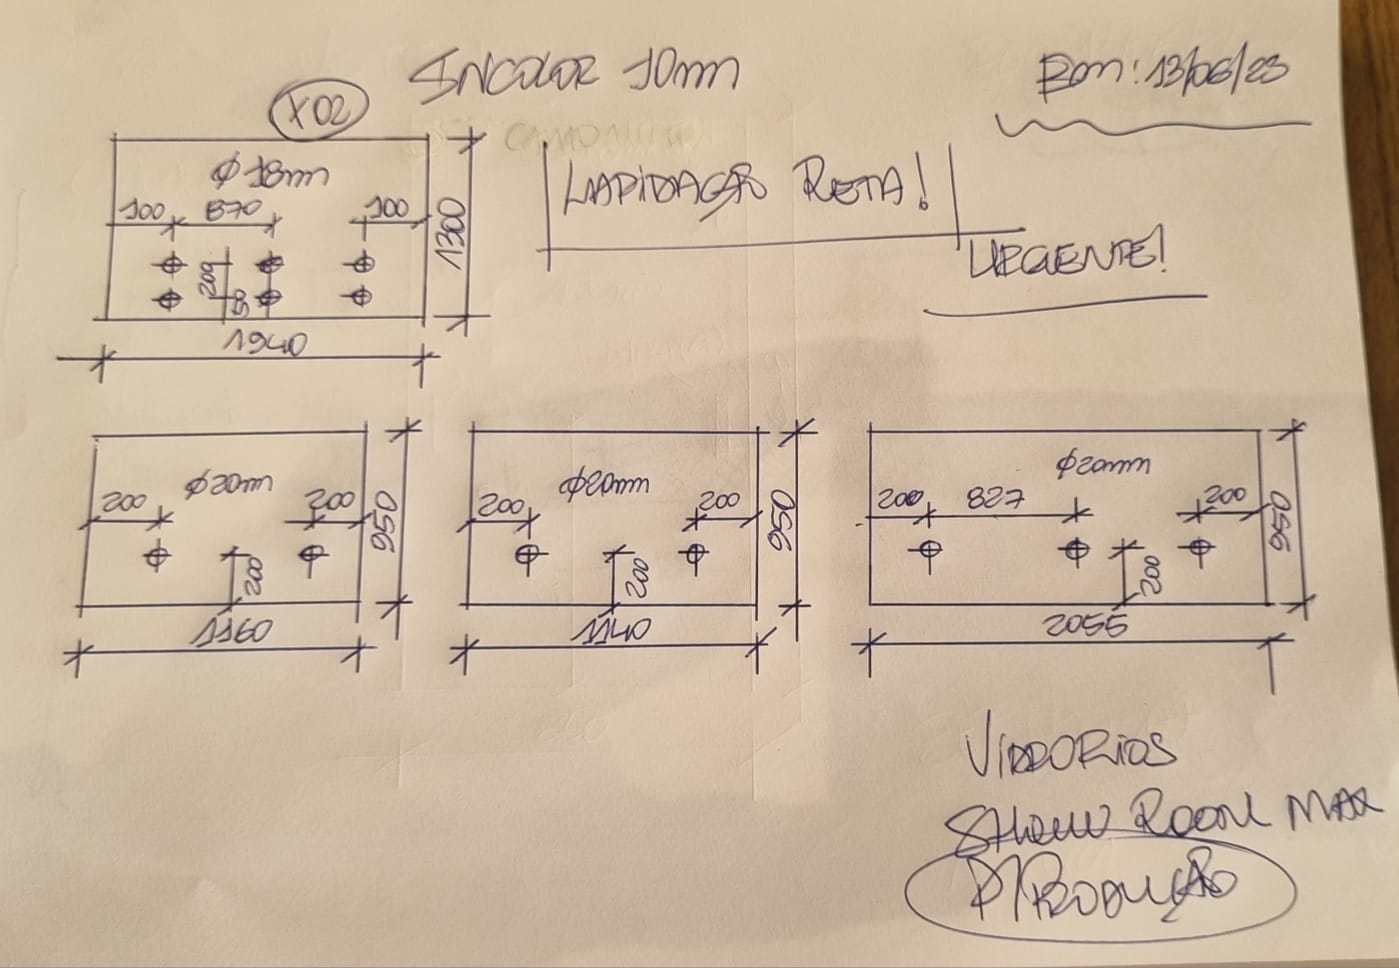 INCOLOR 10mm
Bom: 13/06/23
X02
LAPIDAÇÃO RETA!
URGENTE!
φ 18mm
100 870 100
1300
200
1940
φ20mm
200 200
950
200
1160
φ20mm
200 200
950
200
1140
φ20mm
200 827 200
950
200
2055
VIDRORIOS
SHOW ROOM MAX
P/ PRODUÇÃO